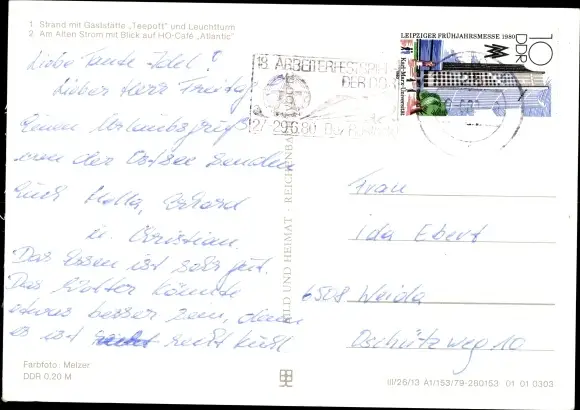 1. Strand mit Gaststätte „Teepott" und Leuchtturm
2. Am Alten Strom mit Blick auf HO-Café „Atlantic"
Liebe Tante Idel!
Lieber Herr Freitag
Einen Urlaubsgruß
von der Ostsee senden
Euch Holla, Erhard
u. Christian.
Das Essen ist sehr gut.
Das Wetter könnte
etwas besser sein, denn
es ist recht kühl
Farbfoto: Melzer
DDR 0,20 M
BILD UND HEIMAT · REICHENBACH
18. ARBEITERFESTSPIELE
DER DDR
27.-29.6.80
LEIPZIGER FRÜHJAHRSMESSE 1980
Karl-Marx-Universität
10
DDR
Frau
Ida Ebert
6508 Weida
Oschützweg 10
III/26/13 A1/153/79-280153 01 01 0303